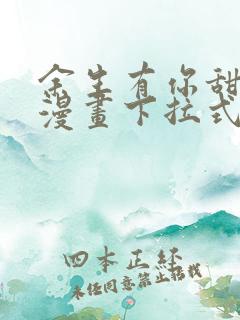 余生有你甜
漫畫下拉式
四本正经
未经同意禁止搭载